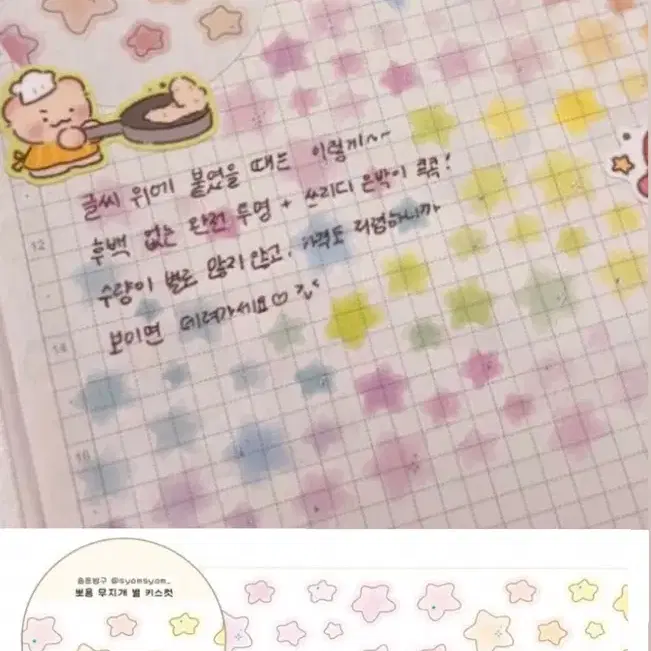 글씨 위에 붙였을 때는 이렇게~~
12
후백 없는 완전 투명 + 쓰리디 은박이 콕콕!
수량이 별로 많지 않고, 가격도 저렴하니까
14
보이면 데려가세요♡
16
숌숌방구 @syomsyom_
뽀욤 무지개 별 키스컷